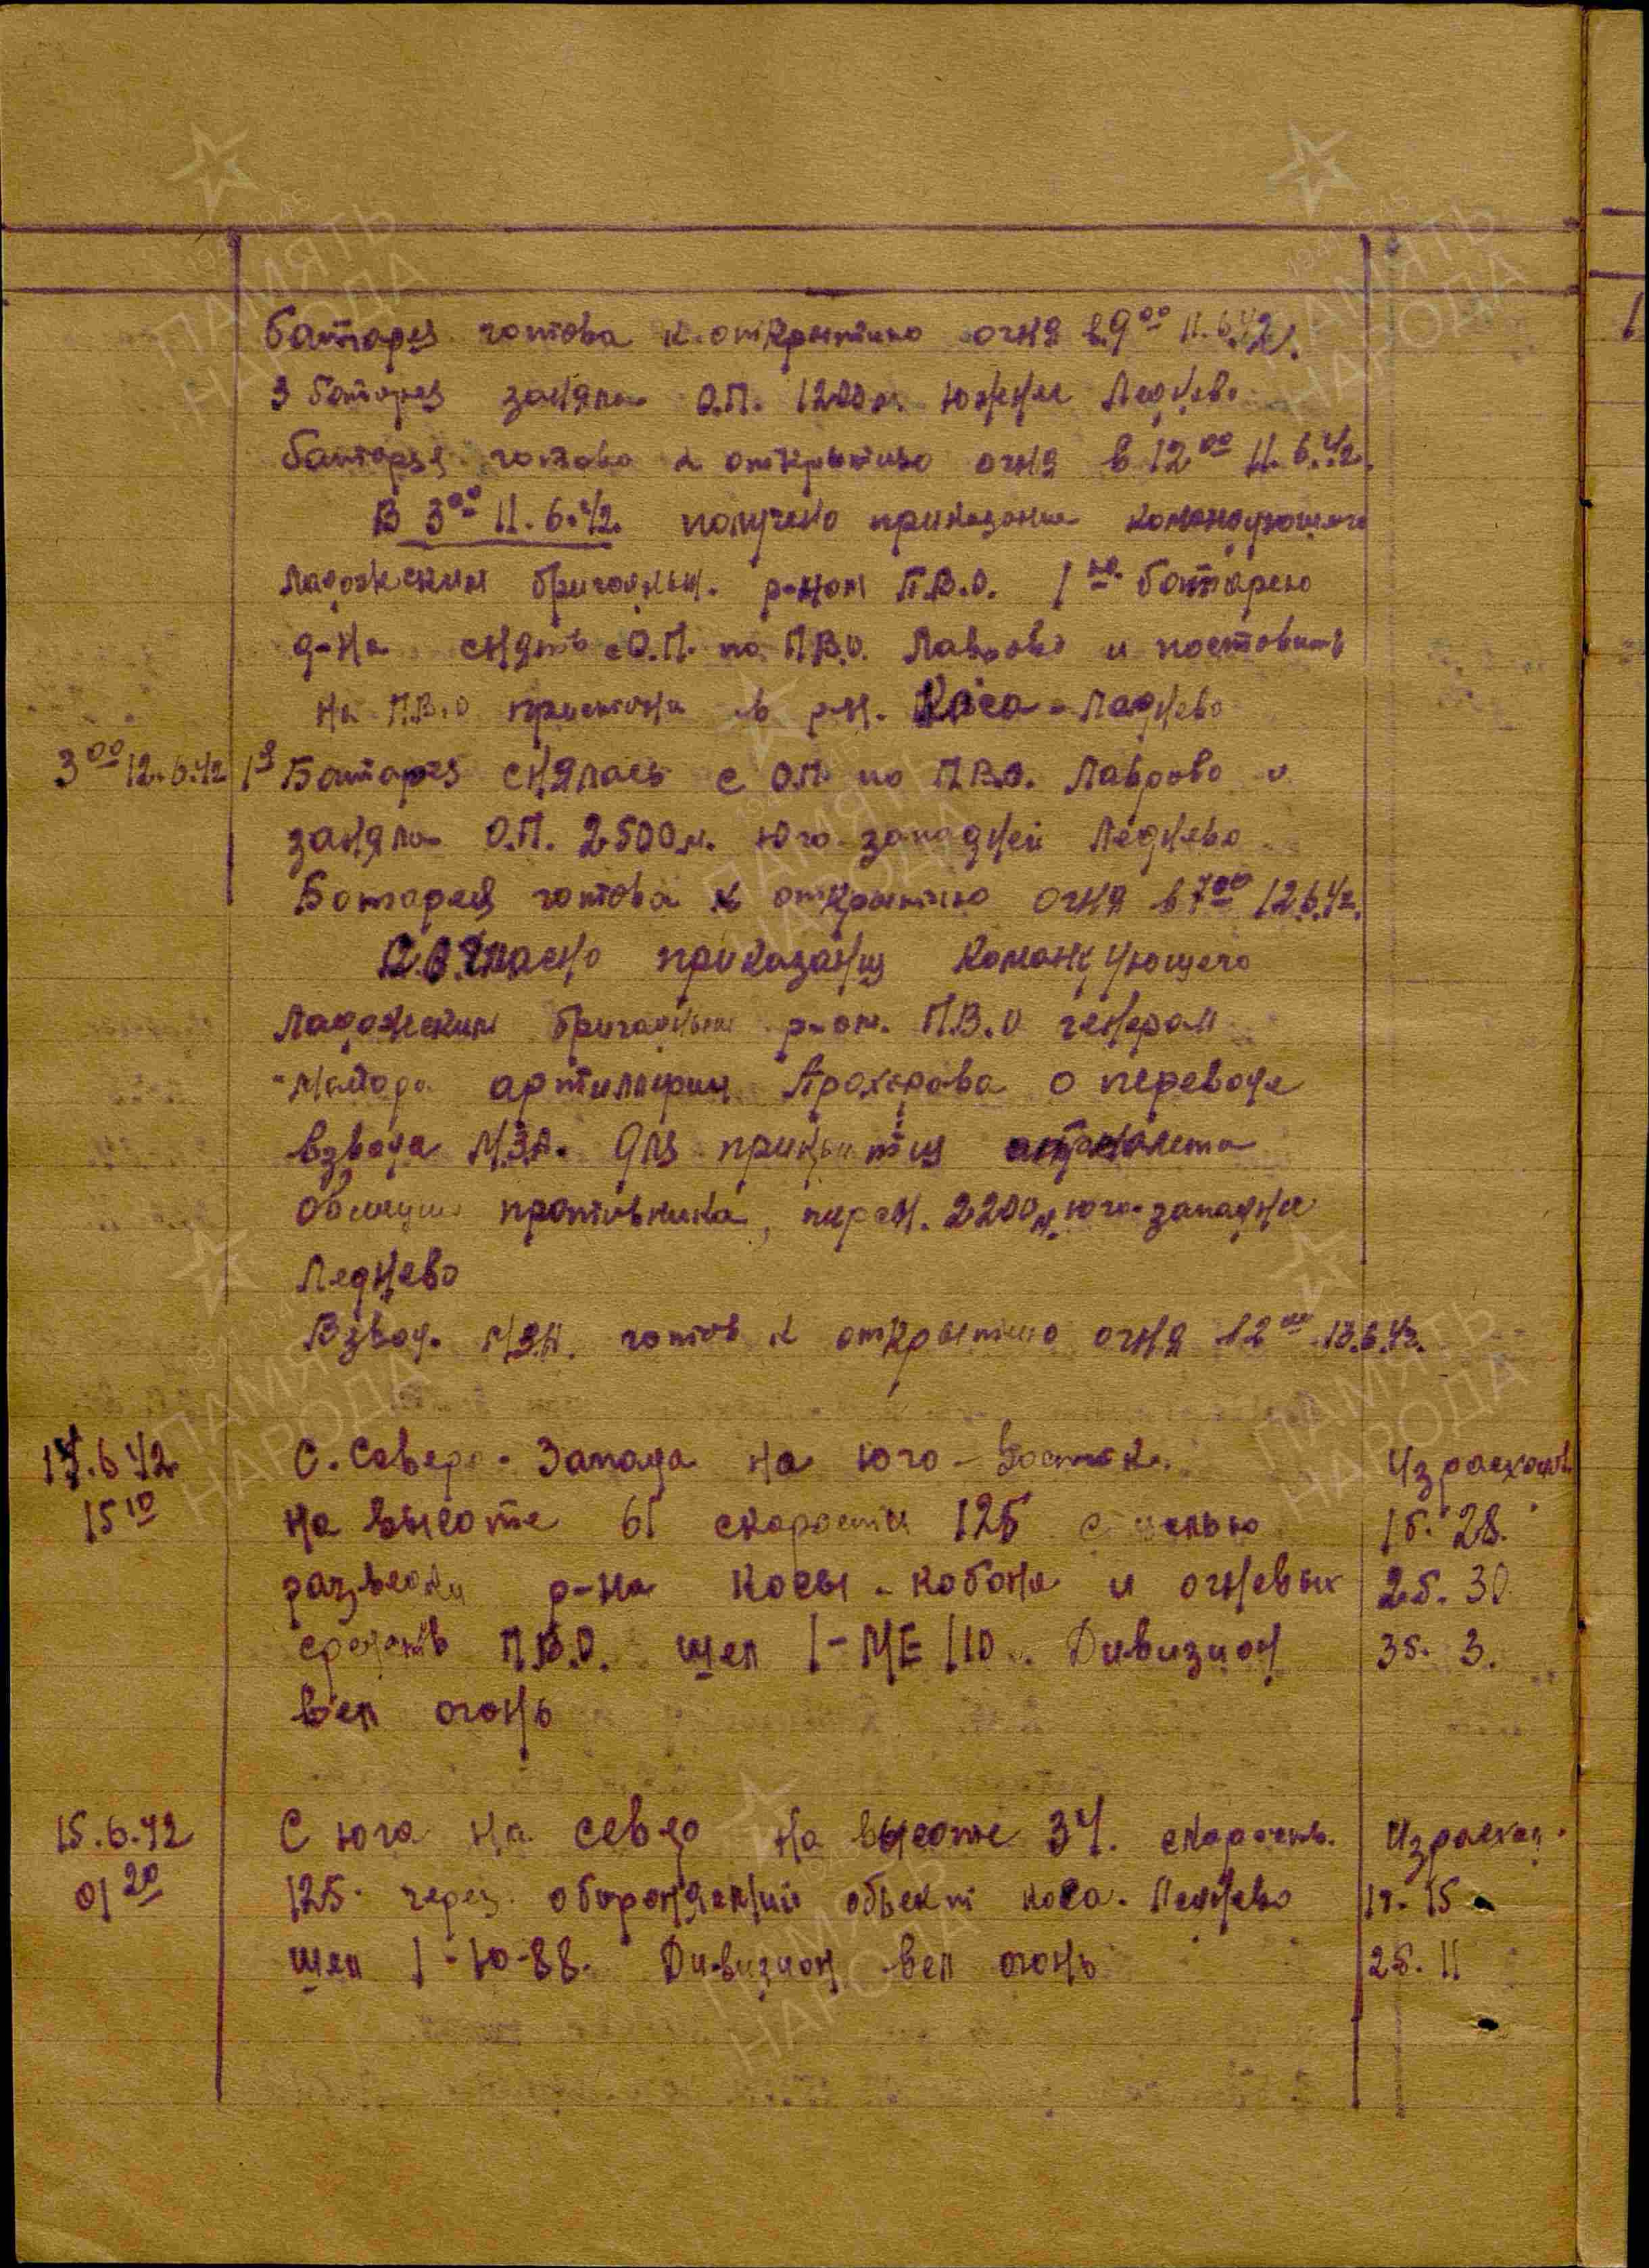 Батарея готова к открытию огня в 9 00 11.6.42.
3 батарея заняла О.П. 1200 м. южнее Леднево
Батарея готова к открытию огня в 12 00 11.6.42.
В 3 00 11.6.42. получено приказание командующего
Ладожским бригадным. р-ном П.В.О. 1 ю. батарею
д-на снять с О.П. по П.В.О. Лаврово и поставить
на П.В.О пристани в р-н. Коса - Леднево
3 00 12.6.42 1я Батарея снялась с О.П. по П.В.О. Лаврово и
заняла О.П. 2500 м. юго-западней Леднево
Батарея готова к открытию огня в 7 00 12.6.42.
Согласно приказания Командующего
Ладожским бригадным р-ом. П.В.О генерал
-майора артиллерии Прохорова о переводе
взвода М.З.А. для прикрытия
противника, 2200 м. юго-западнее
Леднево
Взвод. М.З.А. готов к открытию огня 12 00 13.6.42.
.6.42 С. Северо-Запада на юго-Востока. Израсходов
15 10 на высоте 61 скорости 125 с целью 1б. 28.
разведки р-на Косы-кобона и огневых 2б. 30
средств П.В.О. шел 1-МЕ 110. Дивизион 3б. 3.
вел огонь
15.6.42 С юга на север на высоте 34. скорость. Израсход.
01 20 125. через. обороняемый объект коса. Леднево 1б. 15
шел 1-Ю-88. Дивизион вел огонь 2б. 11
1941-1945
ПАМЯТЬ
НАРОДА